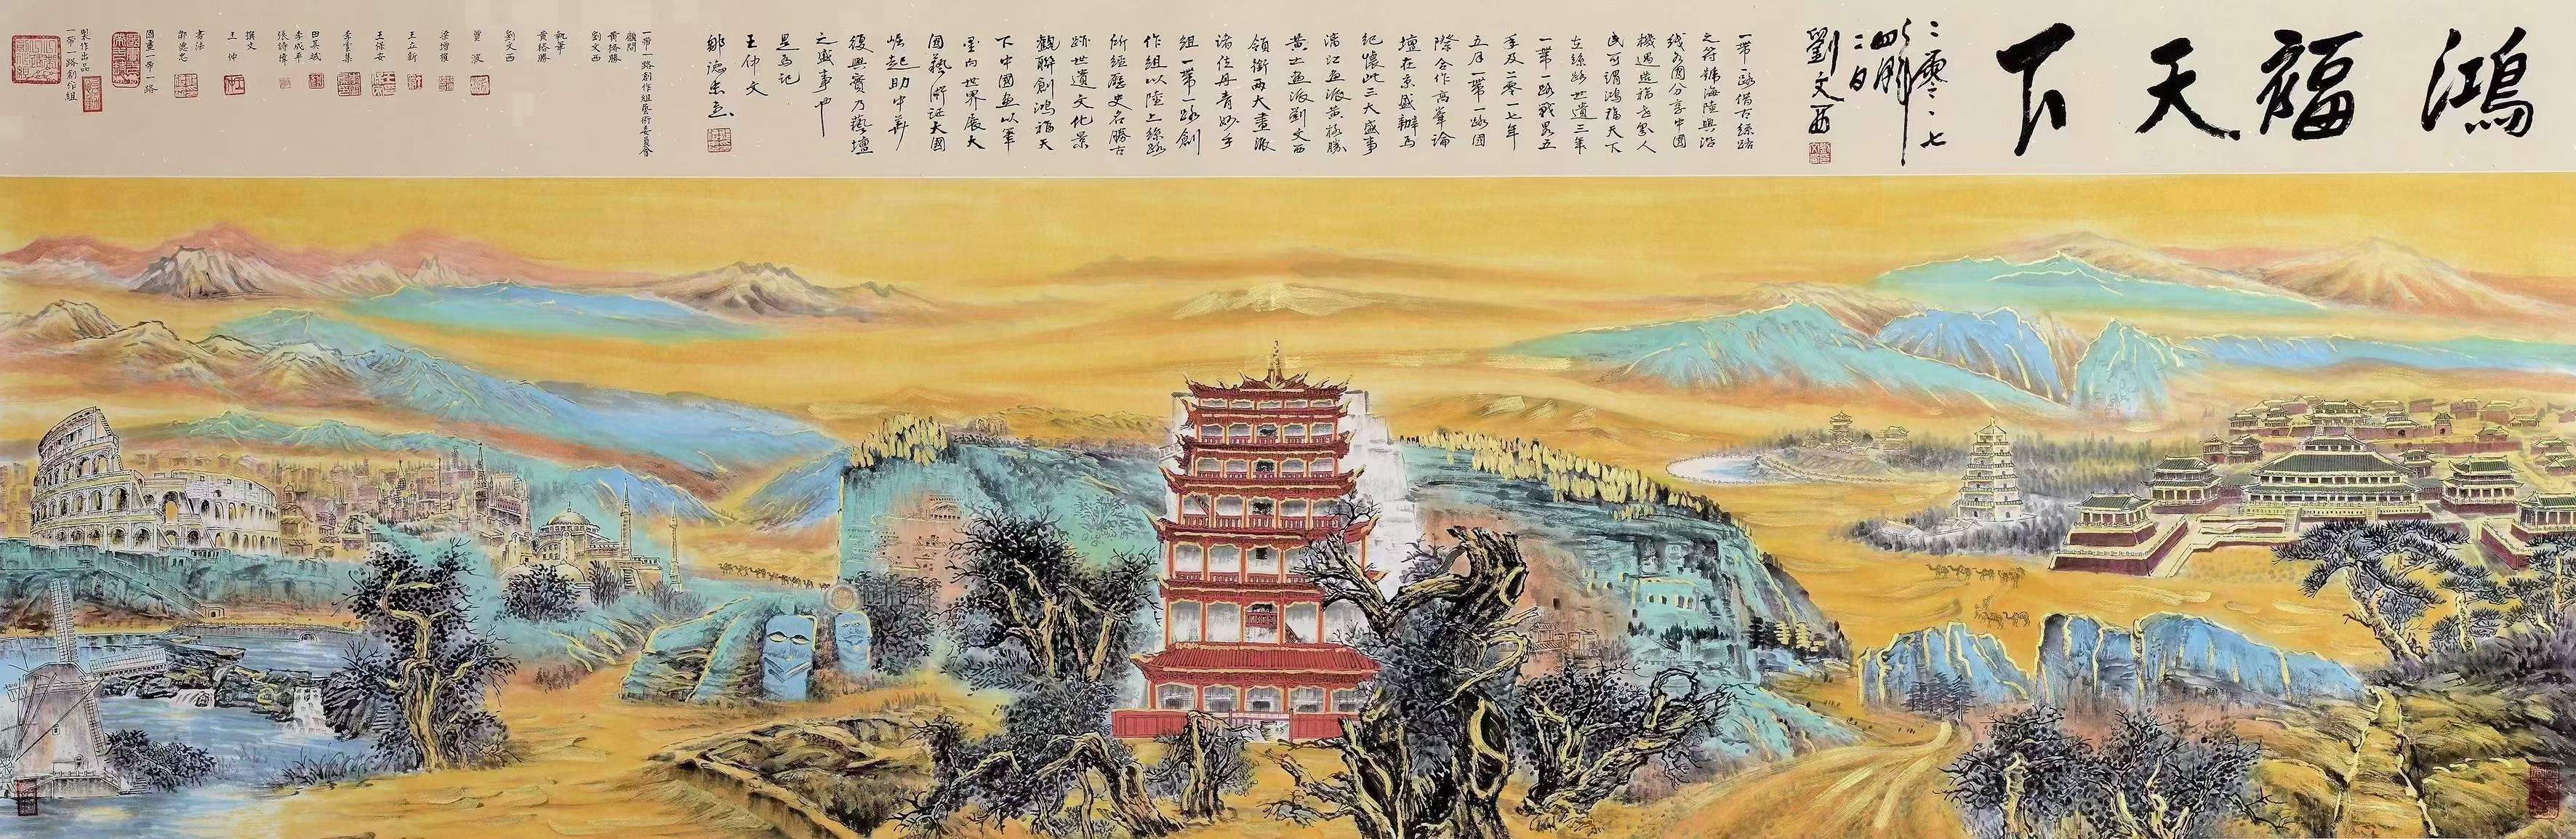 鴻福天下
二零一七
四月
二日
劉文西
一帶一路借古絲路
之符號海陸興沿
线各國分享中國
機遇造福眾人
民可謂鴻福天下
在絲路世遺三年
一帶一路戰畧五
年及二零一七年
五月一帶一路國
際合作高峯論
壇在京盛辦為
紀懷此三大盛事
漓江畫派黃格勝
黃土畫派劉文西
領銜兩大畫派
諸位丹青妙手
組一帶一路創
作組以陸上絲路
所經歷史名勝古
跡世遺文化景
觀聯創鴻福天
下中國畫以筆
墨向世界展大
國藝術証大國
崛起助中華
復興實乃藝壇
之盛事也
是為記
王仲文
鄒德忠書
一帶一路創作組藝術委員會
顧問
黃格勝
劉文西
執筆
黃格勝
劉文西
賈波
梁增
王立新
王保安
李雲集
田昊城
李成平
張詩
撰文
王仲
書法
鄒德忠
國畫一帶一路
製作出品
一帶一路創作組